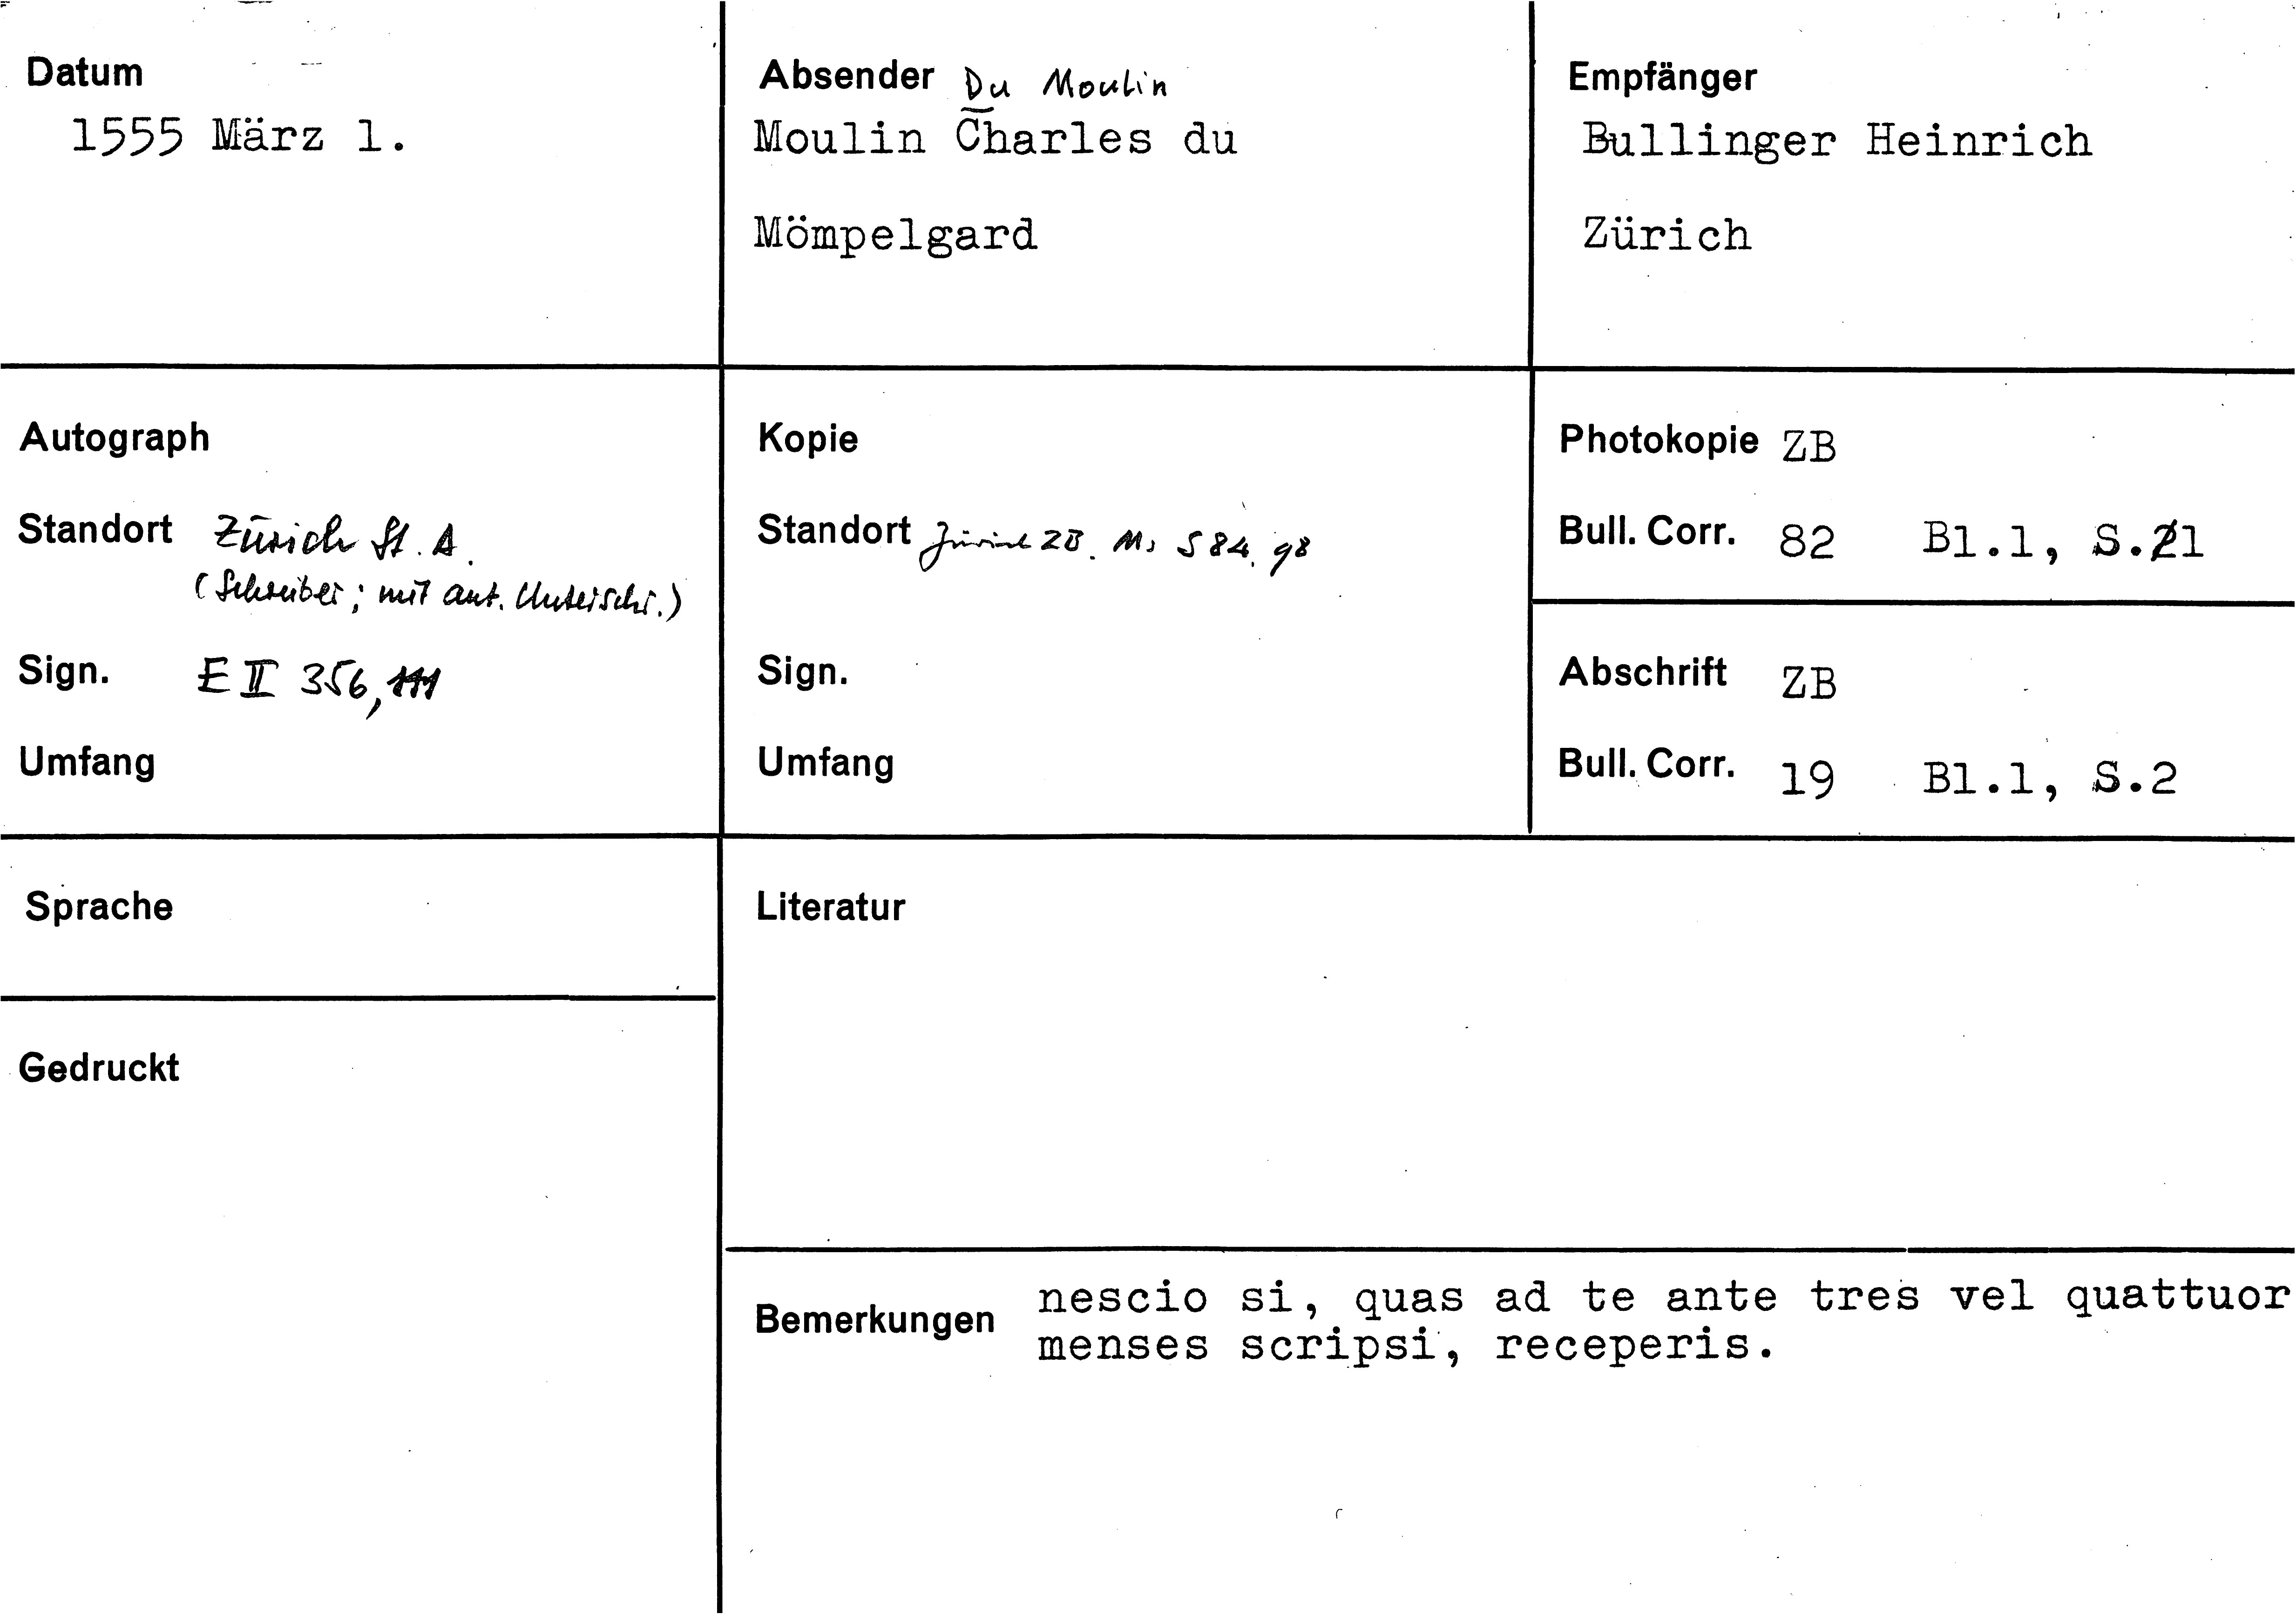 Datum
1555 März 1.
Absender Du Moulin
Moulin Charles du
Mömpelgard
Empfänger
Bullinger Heinrich
Zürich
Autograph
Standort Zürich St. A.
(Schreiber; mit aut. Unterschr.)
Sign. E II 356,111
Umfang
Kopie
Standort Zürich ZB. Ms S 84, 98
Sign.
Umfang
Photokopie ZB
Bull. Corr. 82 Bl.1, S.21
Abschrift ZB
Bull. Corr. 19 Bl.1, S.2
Sprache
Literatur
Gedruckt
Bemerkungen nescio si, quas ad te ante tres vel quattuor
menses scripsi, receperis.